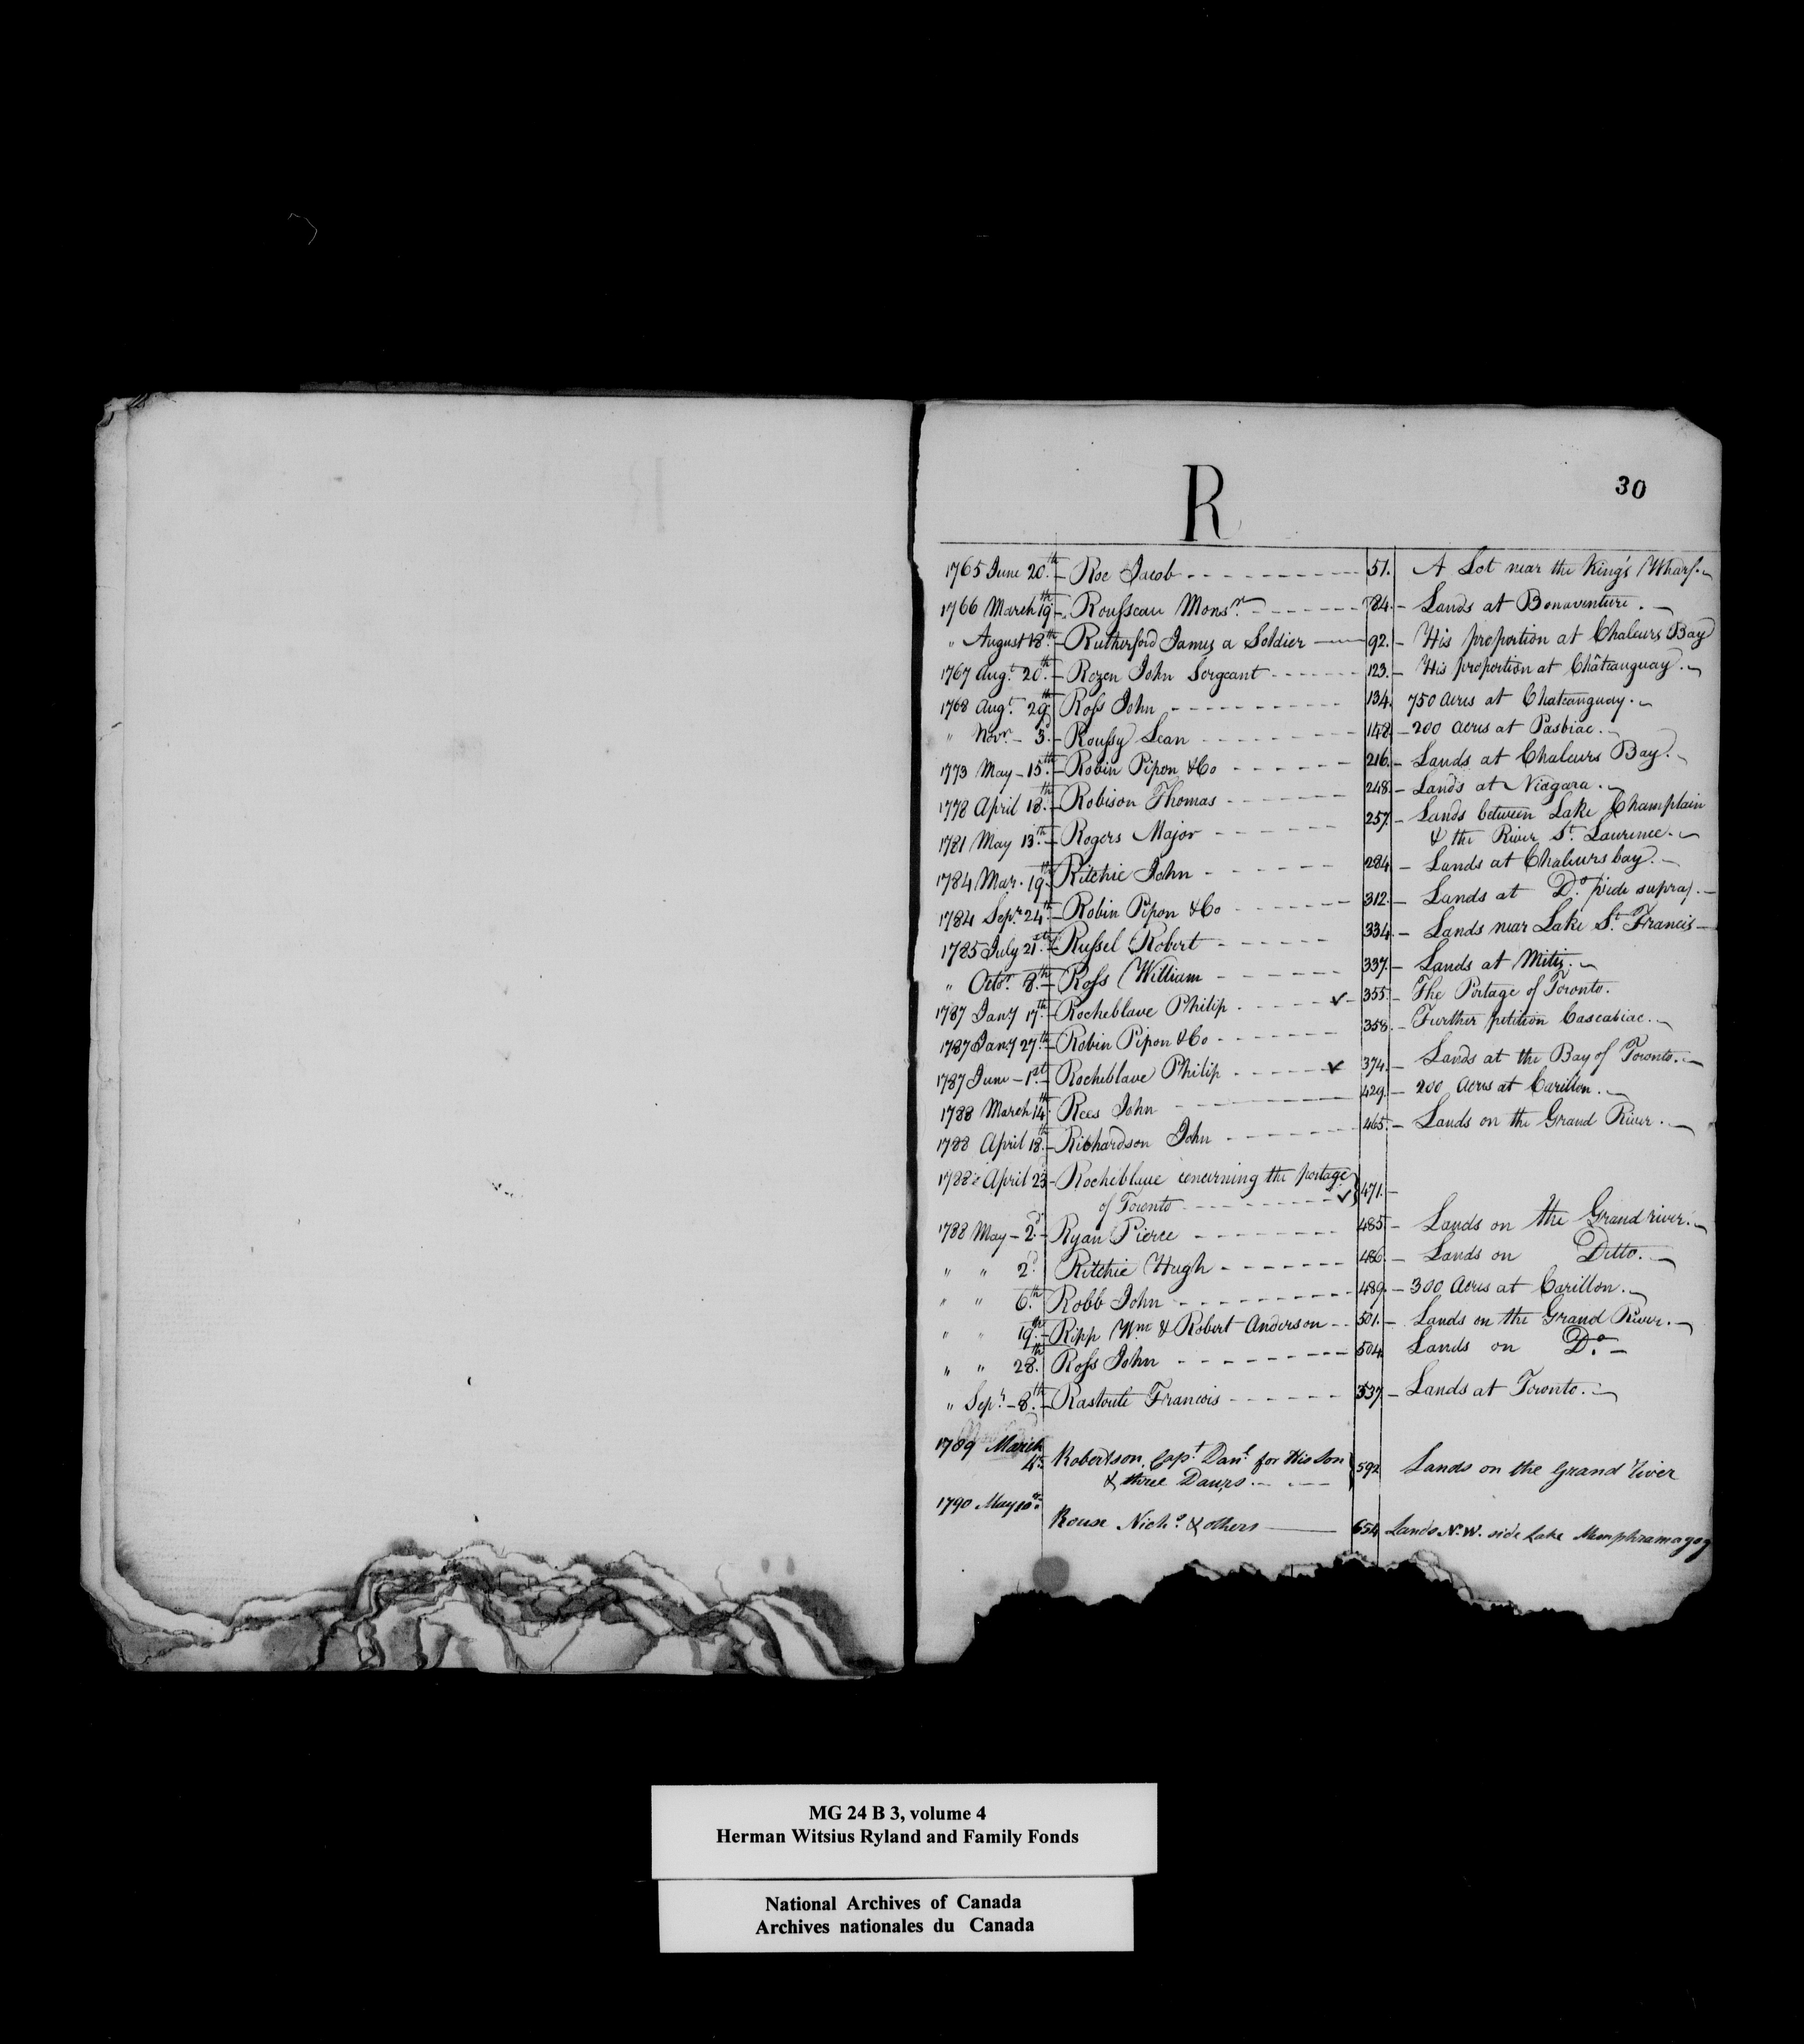 R
30
1765 June 20.th – Roe Jacob 51. A Lot near the King's Wharf.
1766 March 19th – Rousseau Monsr. 784. – Lands at Bonaventure.
" August 18.th – Rutherford James a Soldier 92. – His proportion at Chaleurs Bay
1767 Augt. 20.th – Rozen John Sergeant 123. – His proportion at Châteauguay.
1768 Augt. 29th Ross John 134. 750 Acres at Chateauguay.
" Novr. – 3.d – Roussy Lean 148. – 200 Acres at Pasbiac.
1773 May – 15.th – Robin Pipon & Co 216. – Lands at Chaleurs Bay.
1778 April 18.th – Robison Thomas 248. – Lands at Niagara.
1781 May 13.th – Rogers Major 257. – Lands between Lake Champlain
& the River St. Laurence.
1784 Mar. 19th Ritchie John 284 – Lands at Chaleurs bay.
1784 Sepr. 24th – Robin Pipon & Co 312. – Lands at Do. vide supra.
1785 July 21.st – Russel Robert 334. – Lands near Lake St. Francis
" Octor. 8.th – Ross William 337. – Lands at Mitis.
1787 Jany 17.th – Rocheblave Philip ✓ 355. – The Portage of Toronto.
1787 Jany 27.th – Robin Pipon & Co 358. – Further petition Cascabiac.
1787 June – 1st. – Rocheblave Philip ✓ 374. – Lands at the Bay of Toronto.
1788 March 14th Rees John 429. – 200 Acres at Carillon.
1788 April 18.th – Richardson John 465. – Lands on the Grand River.
1788 April 23 – Rocheblave concerning the portage
of Toronto ✓ 471. –
1788 May – 2.d – Ryan Pierce 485 – Lands on the Grand river.
" " 2.d Ritchie Hugh 486. – Lands on Ditto.
" " 6.th Robb John 489. – 300 Acres at Carillon.
" " 19.th – Ripp Wm & Robert Anderson 501. – Lands on the Grand River.
" " 28.th Ross John 504. Lands on Do. –
" Sepr. – 8.th – Rastoute Francois 537 – Lands at Toronto.
1789 March
4th Robertson, Capt Danl for His Son
& three Daurs. 592 Lands on the Grand River
1790 May 10th
Rouse Nichs. & others 654 Lands N. W. side Lake Memphramagog
MG 24 B 3, volume 4
Herman Witsius Ryland and Family Fonds
National Archives of Canada
Archives nationales du Canada